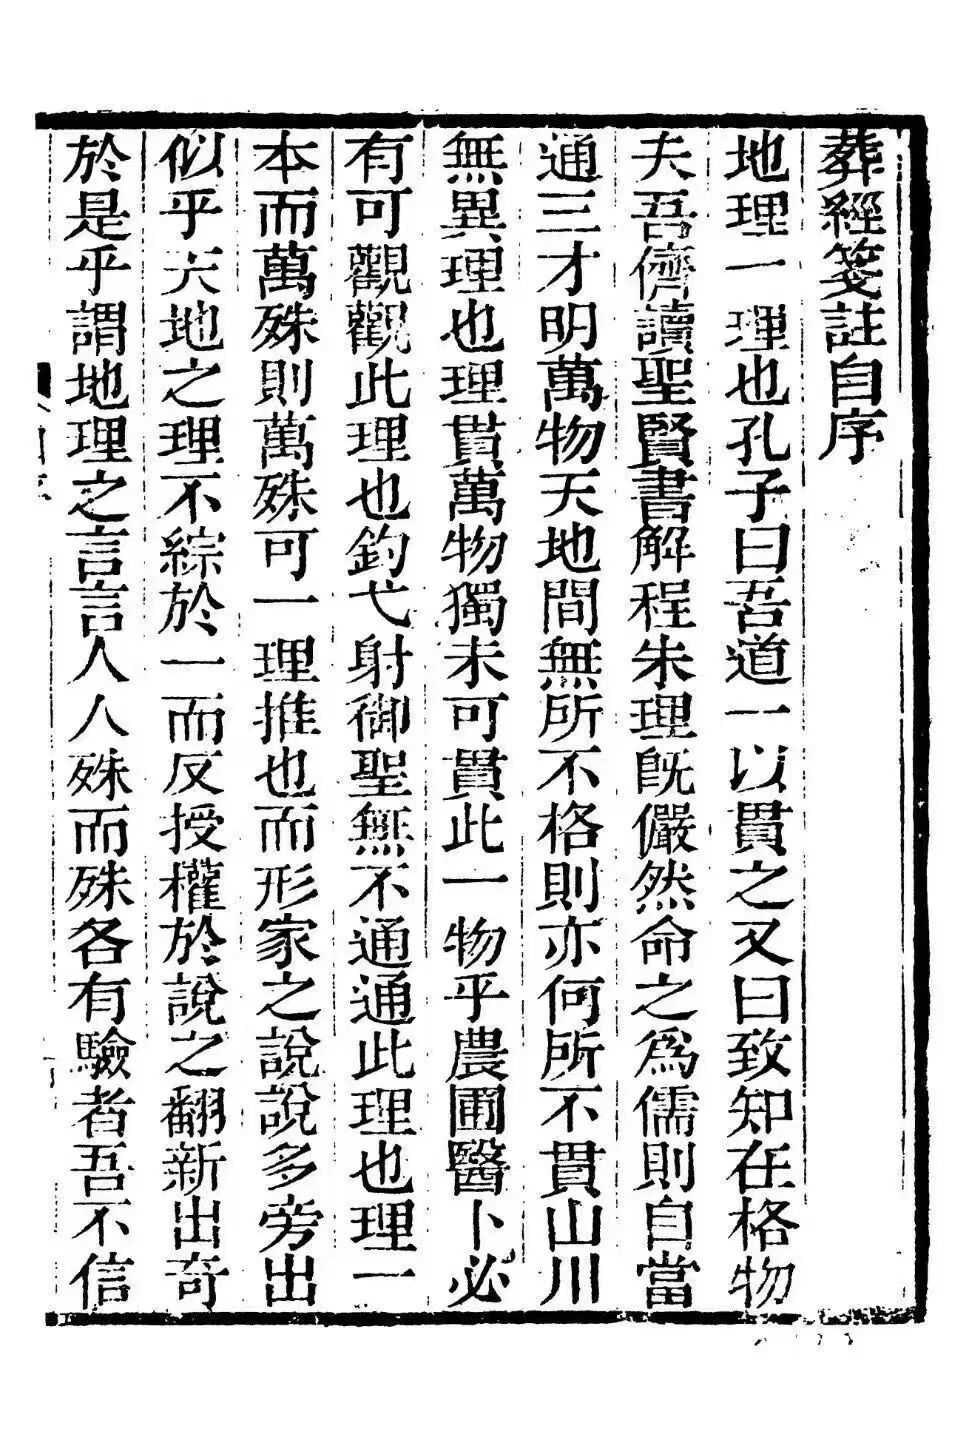 葬經箋註自序
地理一理也孔子曰吾道一以貫之又曰致知在格物
夫吾儕讀聖賢書解程朱理既儼然命之為儒則自當
通三才明萬物天地間無所不格則亦何所不貫山川
無異理也理貫萬物獨未可貫此一物乎農圃醫卜必
有可觀觀此理也釣弋射御聖無不通通此理也理一
本而萬殊則萬殊可一理推也而形家之說說多旁出
似乎天地之理不綜於一而反授權於說之翻新出奇
於是乎謂地理之言言人人殊而殊各有驗者吾不信